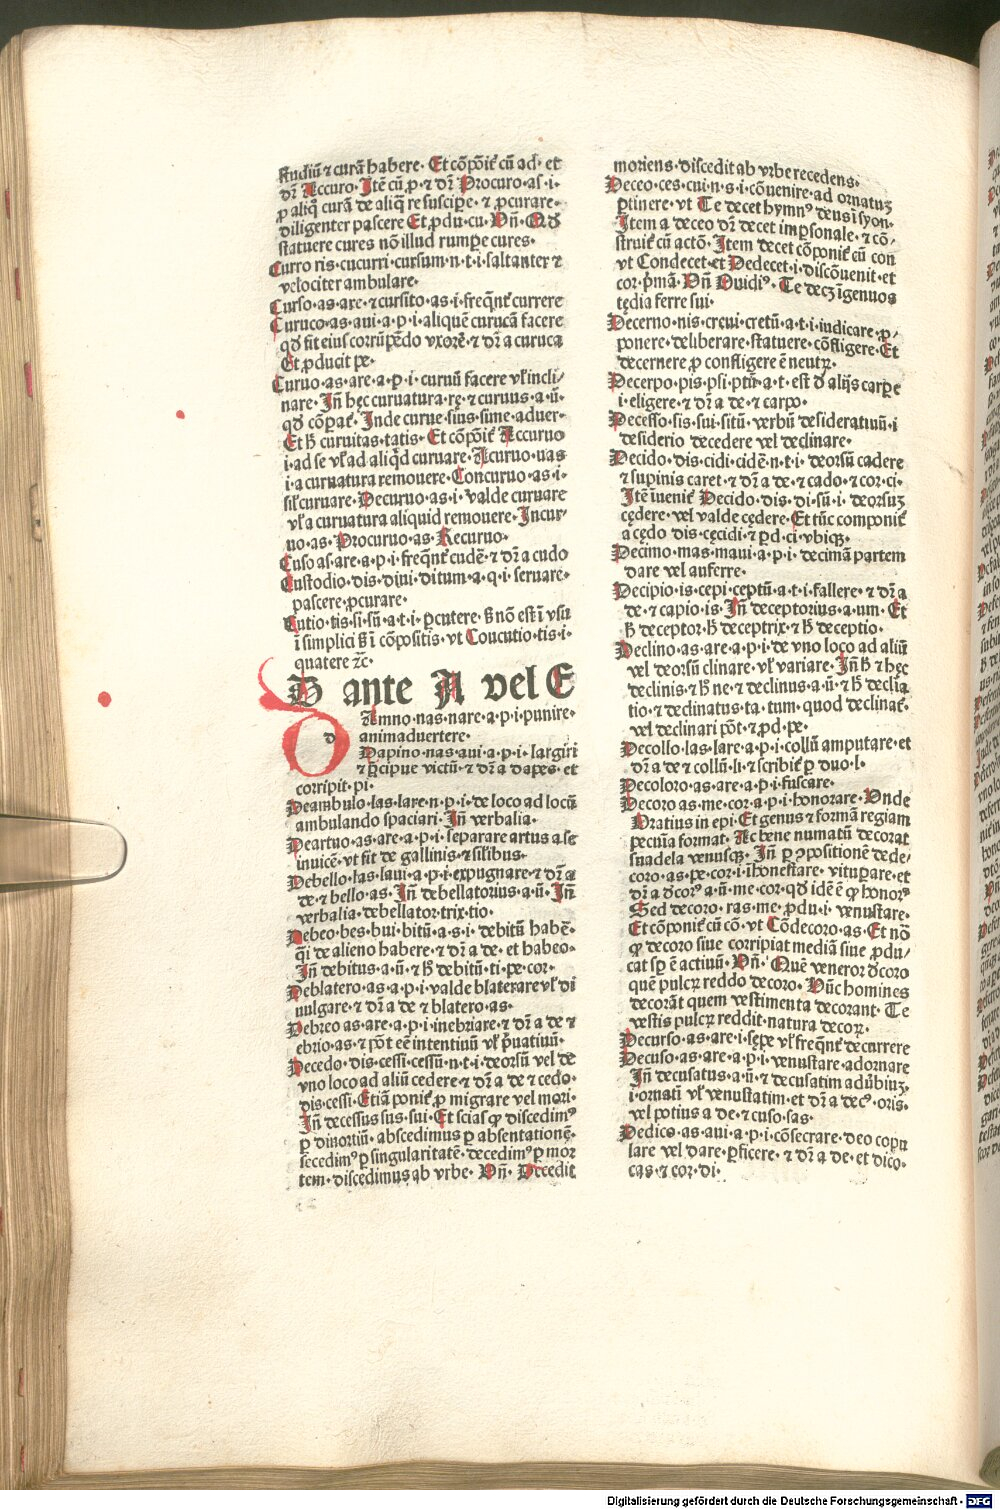 studiū ⁊ curā habere. Et cōpōit̄ cū ad. et
dr̄ Accuro. Itē cū ꝓ. ⁊ dr̄ Procuro.as.i.
ꝓ aliqͦ curā de aliq̄ re suscipe. ⁊ ꝓcurare.
diligenter pascere Et ꝓdu.cu. Vn̄. Qd̄
statuere cures nō illud rumpe cures.
Curro ris.cucurri.cursum.n.t.i.saltanter ⁊
velociter ambulare.
Curso.as.are.⁊ cursito.as.i.freqn̄t̄ currere
Curuco.as.aui.a.p.i.aliquē curucā facere
qd̄ fit eius corrūpēdo vxorē.⁊ dr̄ a curuca
Et ꝓducit pe.
Curuo.as.are.a.p.i.curuū facere vl̄ incli/
nare. In̄ hęc curuatura.rę.⁊ curuus.a.ū.
qd̄ cōpat̄. Inde curue.sius.sime.aduer.
Et h̄ curuitas.tatis. Et cōpōit̄ Accuruo
i.ad se vl̄ ad aliqd̄ curuare. Acuruo.uas
i.a curuatura remouere. Concuruo.as.i.
sil̄ curuare. Decuruo.as.i.valde curuare
vl̄ a curuatura aliquid remouere. Incur
uo.as. Procuruo.as. Recuruo.
Cuso as.are.a.p.i.freqn̄t̄ cudē.⁊ dr̄ a cudo
Custodio.dis.diui.ditum.a.q.i.seruare.
pascere.ꝓcurare.
Cutio.tis.si.sū.a.t.i.ꝑcutere. sꝫ nō est ī vsu
ī simplici sꝫ ī cōpositis. vt Concutio.tis.i.
quatere ⁊c̄.
D ante A vel E
d Amno.nas.nare.a.p.i.punire.
animaduertere.
Dapino.nas.aui.a.p.i.largiri
⁊ p̄cipue victū.⁊ dr̄ a dapes.et
corripit.pi.
Deambulo.las.lare.n.p.i.de loco ad locū
ambulando spaciari. In̄ verbalia.
Deartuo.as.are.a.p.i.separare artus a se
inuicē.vt fit de gallinis.⁊ silibus.
Debello.las.laui.a.p.i.expugnare.⁊ dr̄ a
de.⁊ bello.as. In̄ debellatorius.a.ū. In̄
verbalia.debellator.trix.tio.
Debeo.bes.bui.bitū.a.s.i.debitū habē.
q̄i de alieno habere.⁊ dr̄ a de. et habeo.
In̄ debitus.a.ū.⁊ h̄ debitū.ti.pe.cor.
Deblatero.as.a.p.i.valde blaterare vl̄ di
uulgare.⁊ dr̄ a de ⁊ blatero.as.
Debreo as.are.a.p.i.inebriare.⁊ dr̄ a de ⁊
ebrio.as.⁊ pōt eē intentiuū vl̄ pͥuatiuū.
Decedo.dis.cessi.cessū.n.t.i.deorsū vel de
vno loco ad aliū cedere.⁊ dr̄ a de ⁊ cedo.
dis.cessi. Etiā ponit̄ ꝓ migrare vel mori.
In̄ decessus sus.sui. Et scias ꝙ discedimꝰ
ꝑ diuortiū. abscedimus ꝑ absentationē.
secedimꝰ ꝑ singularitatē. decedimꝰ ꝑ mor
tem. discedimus ab vrbe. Vn̄. Decedit
moriens.discedit ab vrbe recedens.
Deceo.ces.cui.n.s.i.cōuenire.ad ornatuꝫ
ꝑtinere. vt Te decet hymnꝰ deus ī syon.
Item a deceo dr̄ decet imꝑsonale.⁊ cō/
struit̄ cū actō. Item decet cōponit̄ cū con
vt Condecet.et Dedecet.i.discōuenit.et
cor.pͥmā. Vn̄ Ouidiꝰ. Te decꝫ īgenuos
tędia ferre sui.
Decerno.nis.creui.cretū.a.t.i.iudicare.ꝓ/
ponere.deliberare.statuere.cōfligere. Et
decernere ꝓ confligere ē neutꝝ.
Decerpo.pis.psi.ptū.a.t.est d̄ alijs carpe
i.eligere.⁊ dr̄ a de.⁊ carpo.
Decesso.sis.sui.situ.verbū desideratiuū.i
desiderio decedere vel declinare.
Decido.dis.cidi.cidē.n.t.i.deorsū cadere
⁊ supinis caret.⁊ dr̄ a de.⁊ cado.⁊ cor.ci.
Itē īuenit̄ Decido.dis.di.sū.i.deorsuꝫ
cędere.vel valde cędere. Et tūc componit̄
a cędo dis.cęcidi.⁊ ꝓd.ci.vbicꝫ.
Decimo.mas.maui.a.p.i.decimā partem
dare vel auferre.
Decipio.is.cepi.ceptū.a.t.i.fallere.⁊ dr̄ a
de.⁊ capio.is. In̄ deceptorius.a.um. Et
h̄ deceptor.h̄ deceptrix.⁊ h̄ deceptio.
Declino.as.are.a.p.i.de vno loco ad aliū
vel deorsū clinare. vl̄ variare. In̄ h̄ ⁊ hęc
declinis.⁊ h̄ ne.⁊ declinus.a.ū.⁊ h̄ declīa
tio.⁊ declinatus.ta.tum.quod declinat̄.
vel declinari pōt.⁊ ꝓd.pe.
Decollo.las.lare.a.p.i.collū amputare.et
dr̄ a de.⁊ collū.li.⁊ scribit̄ ꝑ duo.l.
Decoloro.as.are.a.p.i.fuscare.
Decoro as.me.cor.a.p.i.honorare. Vnde
Oratius in epi. Et genus ⁊ formā regiam
pecuīa format. Ac bene numatū decorat
suadela venuscꝫ. In̄ ꝑ ꝯpositionē dede/
coro.as.pe.cor.i.īhonestare. vitupare.et
dr̄ a dcorꝰ a.ū.me.cor.qd̄ idē ē ꝙ honorꝰ
Sed decoro.ras.me.ꝓdu.i.venustare.
Et cōponit̄ cū cō.vt Cōdecoro.as. Et nō
ꝙ decoro siue corripiat mediā siue ꝓdu/
cat sp ē actiuū. Vn̄. Quē veneror dcoro
quē pulcꝝ reddo decoro. Nūc homines
decorāt quem vestimenta decorant. Te
vestis pulcꝝ reddit.natura decoꝝ.
Decurso.as.are.i.sępe vl̄ freqn̄t̄ decurrere
Decuso.as.are.a.p.i.venustare.adornare
In̄ decusatus.a.ū.⁊ decusatim aduerbiuꝫ.
i.ornati vl̄ venustatim.et dr̄ a decꝰ.oris.
vel potius a de.⁊ cuso.sas.
Dedico.as.aui.a.p.i.cōsecrare.deo copu
lare vel dare.ꝑficere.⁊ dr̄ a de.et dico.
cas.⁊ cor.di.
Digitalisierung gefördert durch die Deutsche Forschungsgemeinschaft - DFG